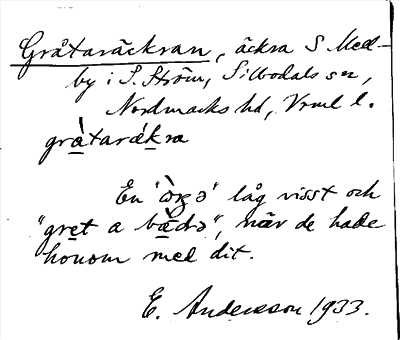 Gråtaräckran, äckra S Med-
by i S. Ström, Silbodals sn,
Nordmarks hd, Vrml l.
gràtarákra
En "ò̀ŋə" låg visst och
"gret a bädə", när de hade
honom med dit.
E. Andersson 1933.